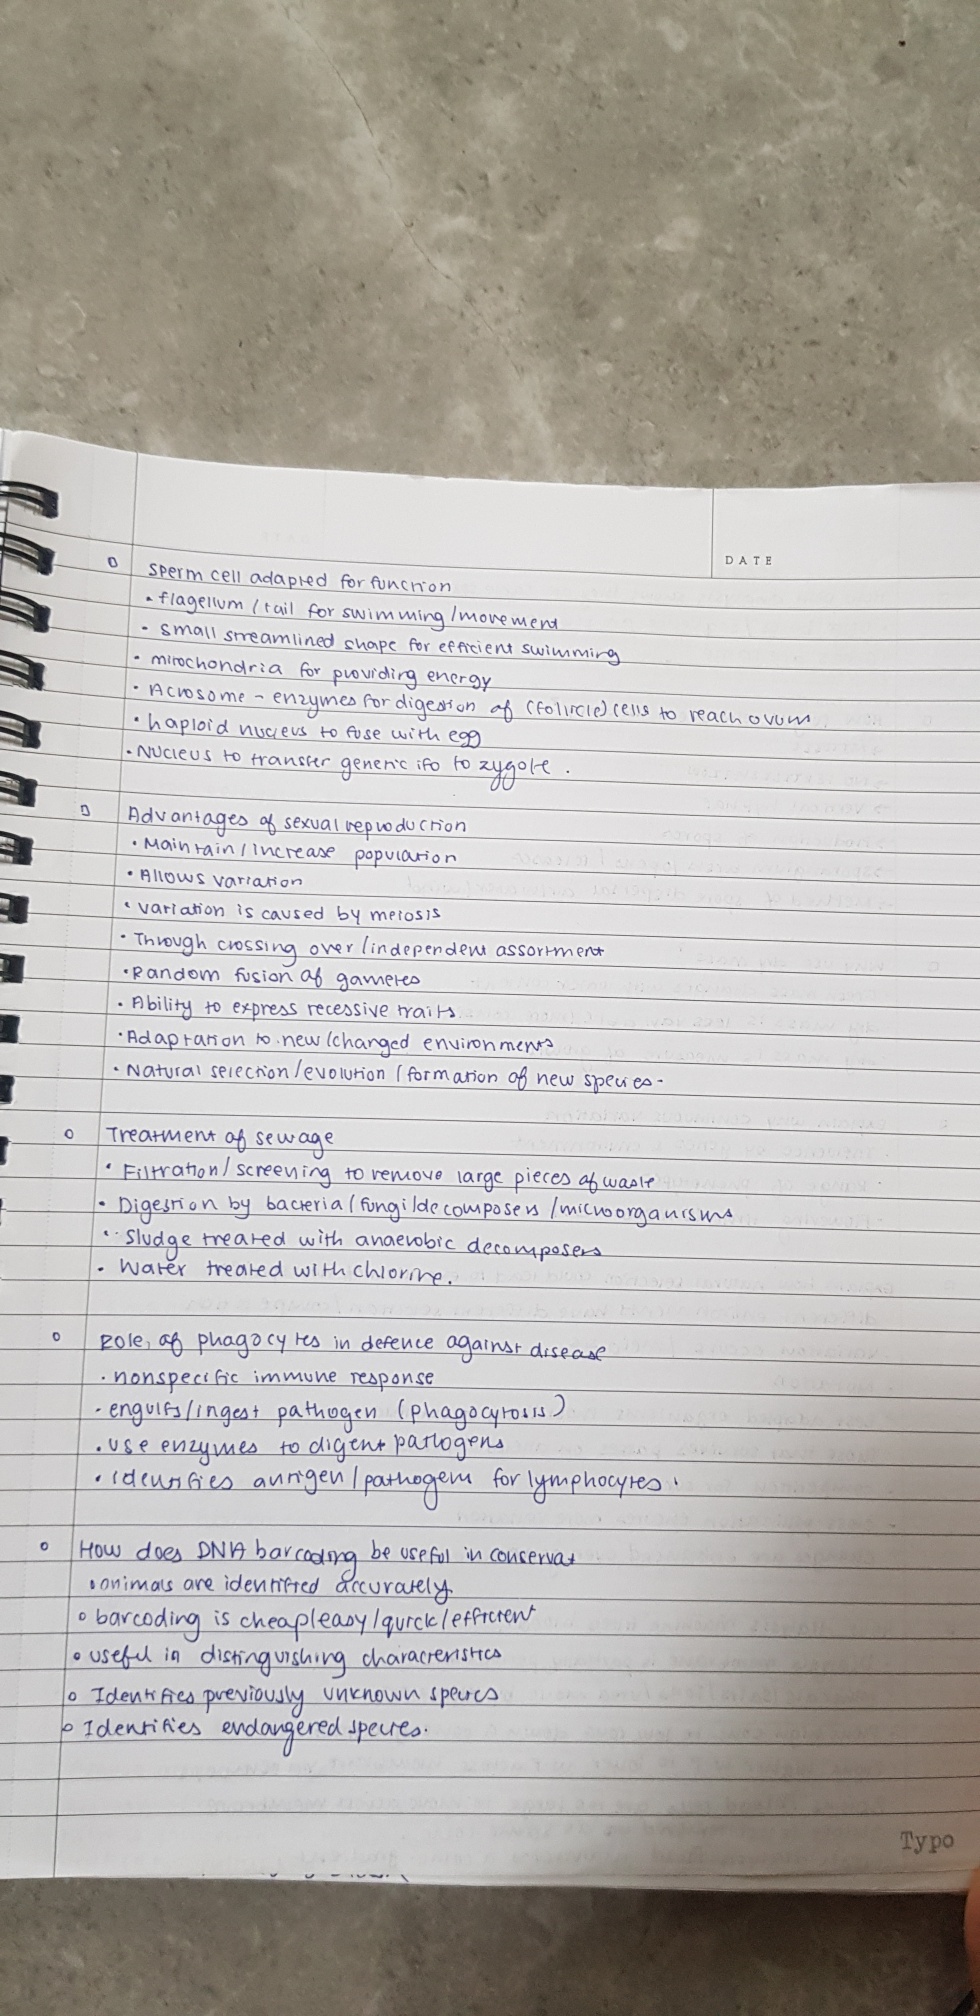 DATE
Sperm cell adapted for function
• flagellum / tail for swimming / movement
• small streamlined shape for efficient swimming
• mitochondria for providing energy
• Acrosome - enzymes for digestion of (follicle) cells to reach ovum
• haploid nucleus to fuse with egg
• Nucleus to transfer genetic ifo to zygote.
Advantages of sexual reproduction
• Maintain / increase population
• Allows variation
• variation is caused by meiosis
• Through crossing over / independent assortment
• Random fusion of gametes
• Ability to express recessive traits
• Adaptation to new / changed environments
• Natural selection / evolution / formation of new species-
Treatment of sewage
• Filtration / screening to remove large pieces of waste
• Digestion by bacteria / fungi / decomposers / microorganisms
• Sludge treated with anaerobic decomposers
• Water treated with chlorine.
Role, of phagocytes in defence against disease
• nonspecific immune response
• engulfs / ingest pathogen (phagocytosis)
• use enzymes to digent patlogens
• identifies antigen / pathogens for lymphocytes.
How does DNA barcoding be useful in conservat
• animals are identified accurately.
• barcoding is cheap / easy / quick / efficient
• useful in distinguishing characteristics
• Identifies previously unknown species
• Identifies endangered species.
Typo